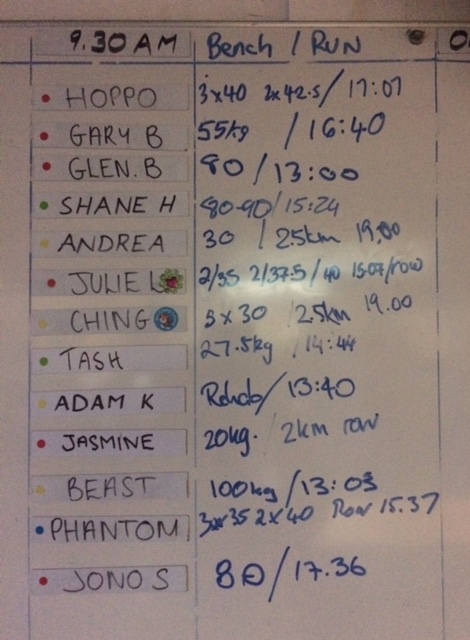 9.30 AM Bench / RUN
HOPPO 3x40 2x42.5 / 17:07
GARY B 55kg / 16:40
GLEN. B 80 / 13:00
SHANE H 80-90 / 15:24
ANDREA 30 / 2.5km 19.00
JULIE L 2/35 2/37.5 / 40 15:07/row
CHING 3 x 30 / 2.5km 19.00
TASH 27.5kg / 14:44
ADAM K Rehab / 13:40
JASMINE 20kg. / 2km row
BEAST 100kg / 13:03
PHANTOM 3x35 2x40 Row 15.37
JONO S 80 / 17.36